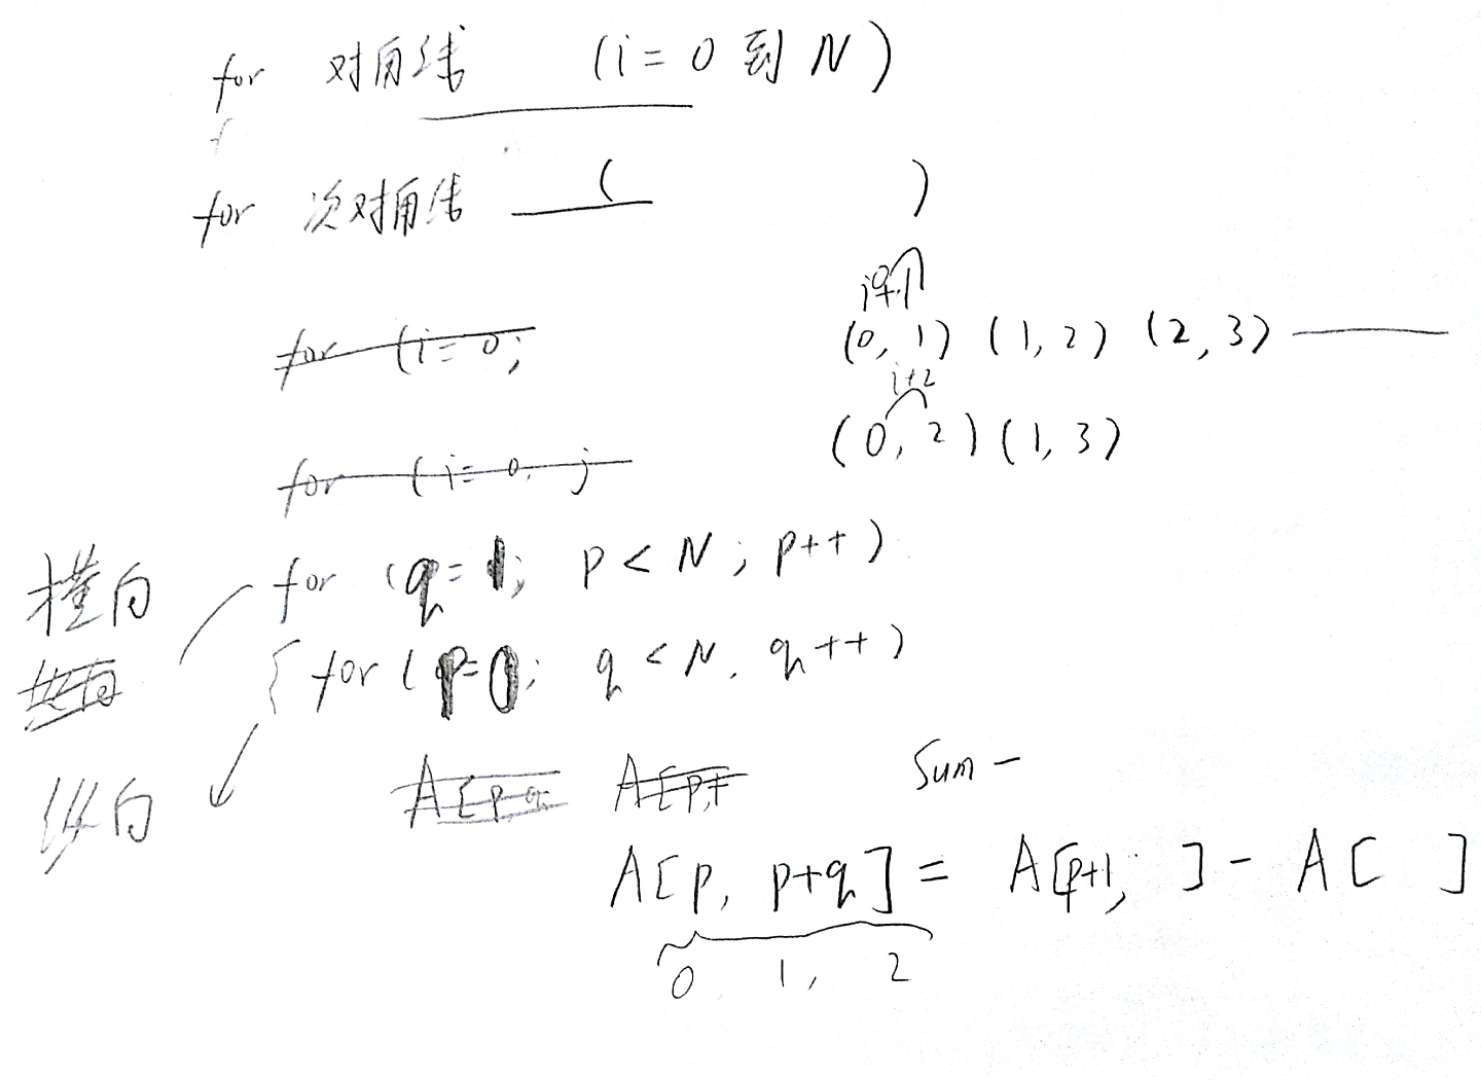 for 对角线 (i = 0 到 N)
for 次对角线 ( )
i+1
for (i = 0;
(0, 1) (1, 2) (2, 3)
i+2
(0, 2) (1, 3)
for (i = 0, j
横向
for (q = 1; p < N; p++)
{ for (p=0; q < N, q++)
纵向
A[p, q A[p,+
Sum -
A[p, p+q] = A[p+1, ] - A[ ]
0 1, 2